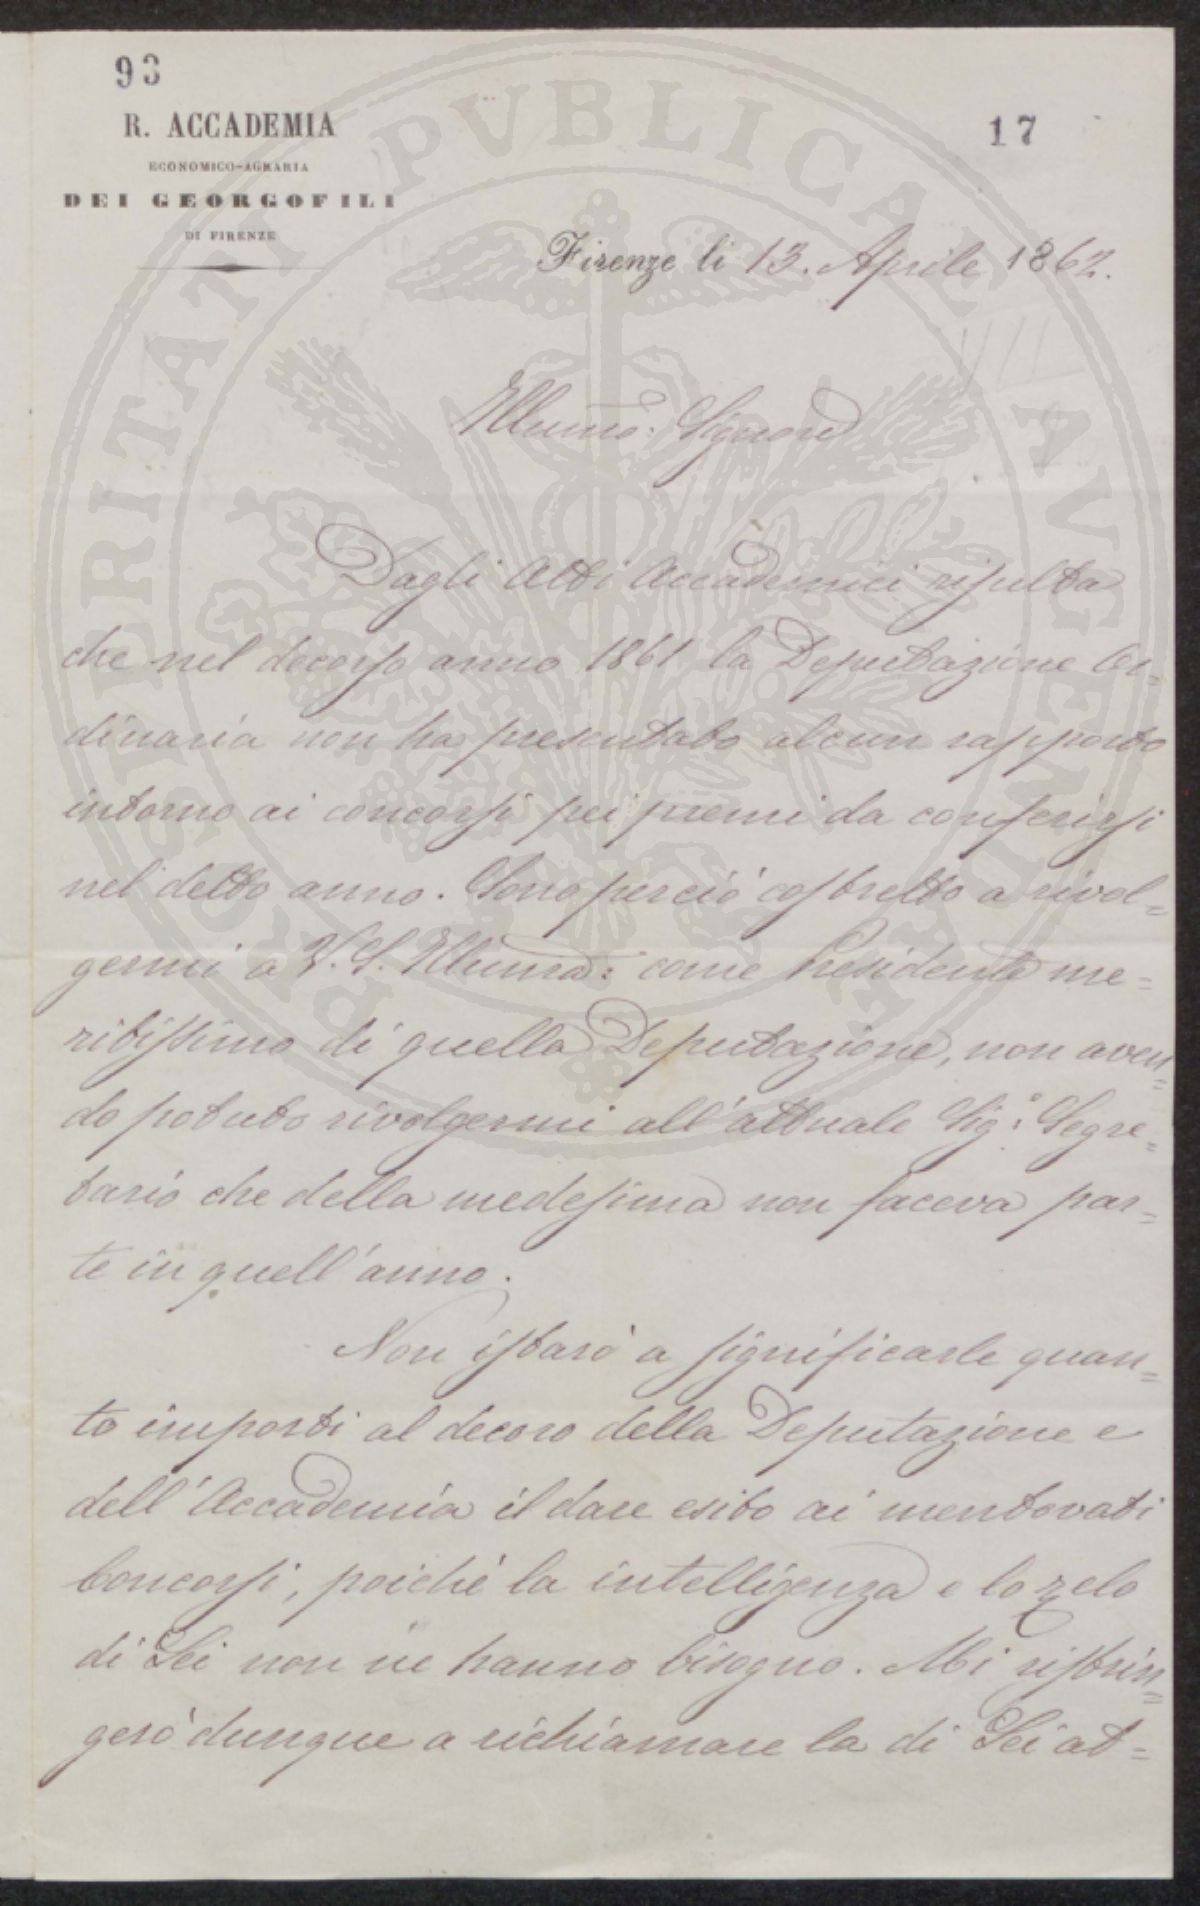 93
R. ACCADEMIA
17
ECONOMICO-AGRARIA
DEI GEORGOFILI
DI FIRENZE
Firenze li 13. Aprile 1862.
Illumo: Signore
Dagli Atti Accademici risulta
che nel decorso anno 1861 la Deputazione Or=
dinaria non ha presentato alcun rapporto
intorno ai concorsi pei premi da conferirsi
nel detto anno. Sono perciò costretto a rivol=
germi a V. S. Illuma: come Presidente me=
ritissimo di quella Deputazione, non aven=
do potuto rivolgermi all'attuale Sigr: Segre=
tario che della medesima non faceva par=
te in quell'anno.
Non istarò a significarle quan=
to importi al decoro della Deputazione e
dell'Accademia il dare esito ai mentovati
Concorsi, poichè la intelligenza e lo zelo
di Lei non ne hanno bisogno. Mi ristrin=
gerò dunque a richiamare la di Lei at=
PROSPERITATI PVBLICAE AVGENDAE